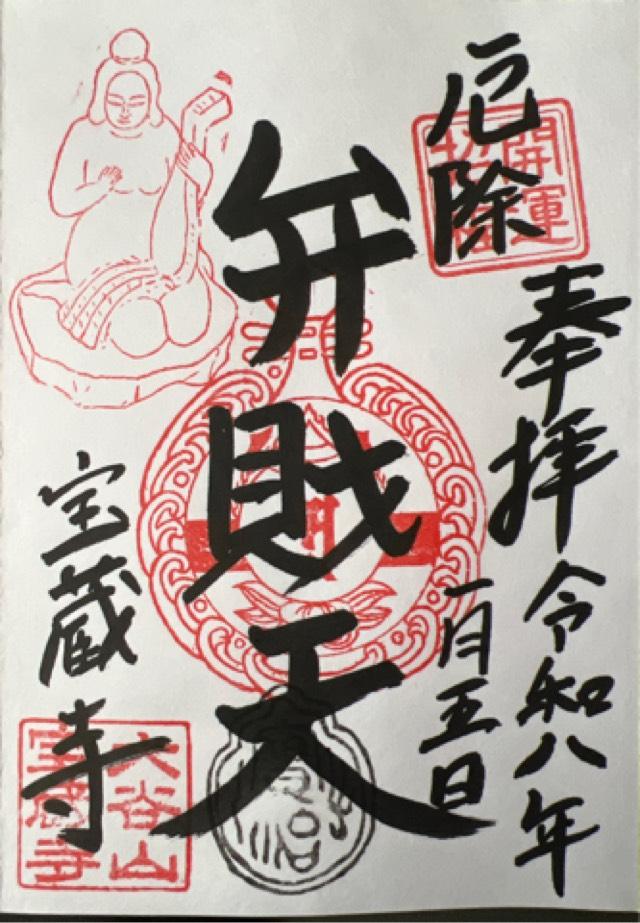 厄除
開運
招福
奉拝
令和八年
一月五日
弁財天
宝蔵寺
大谷山
宝蔵寺